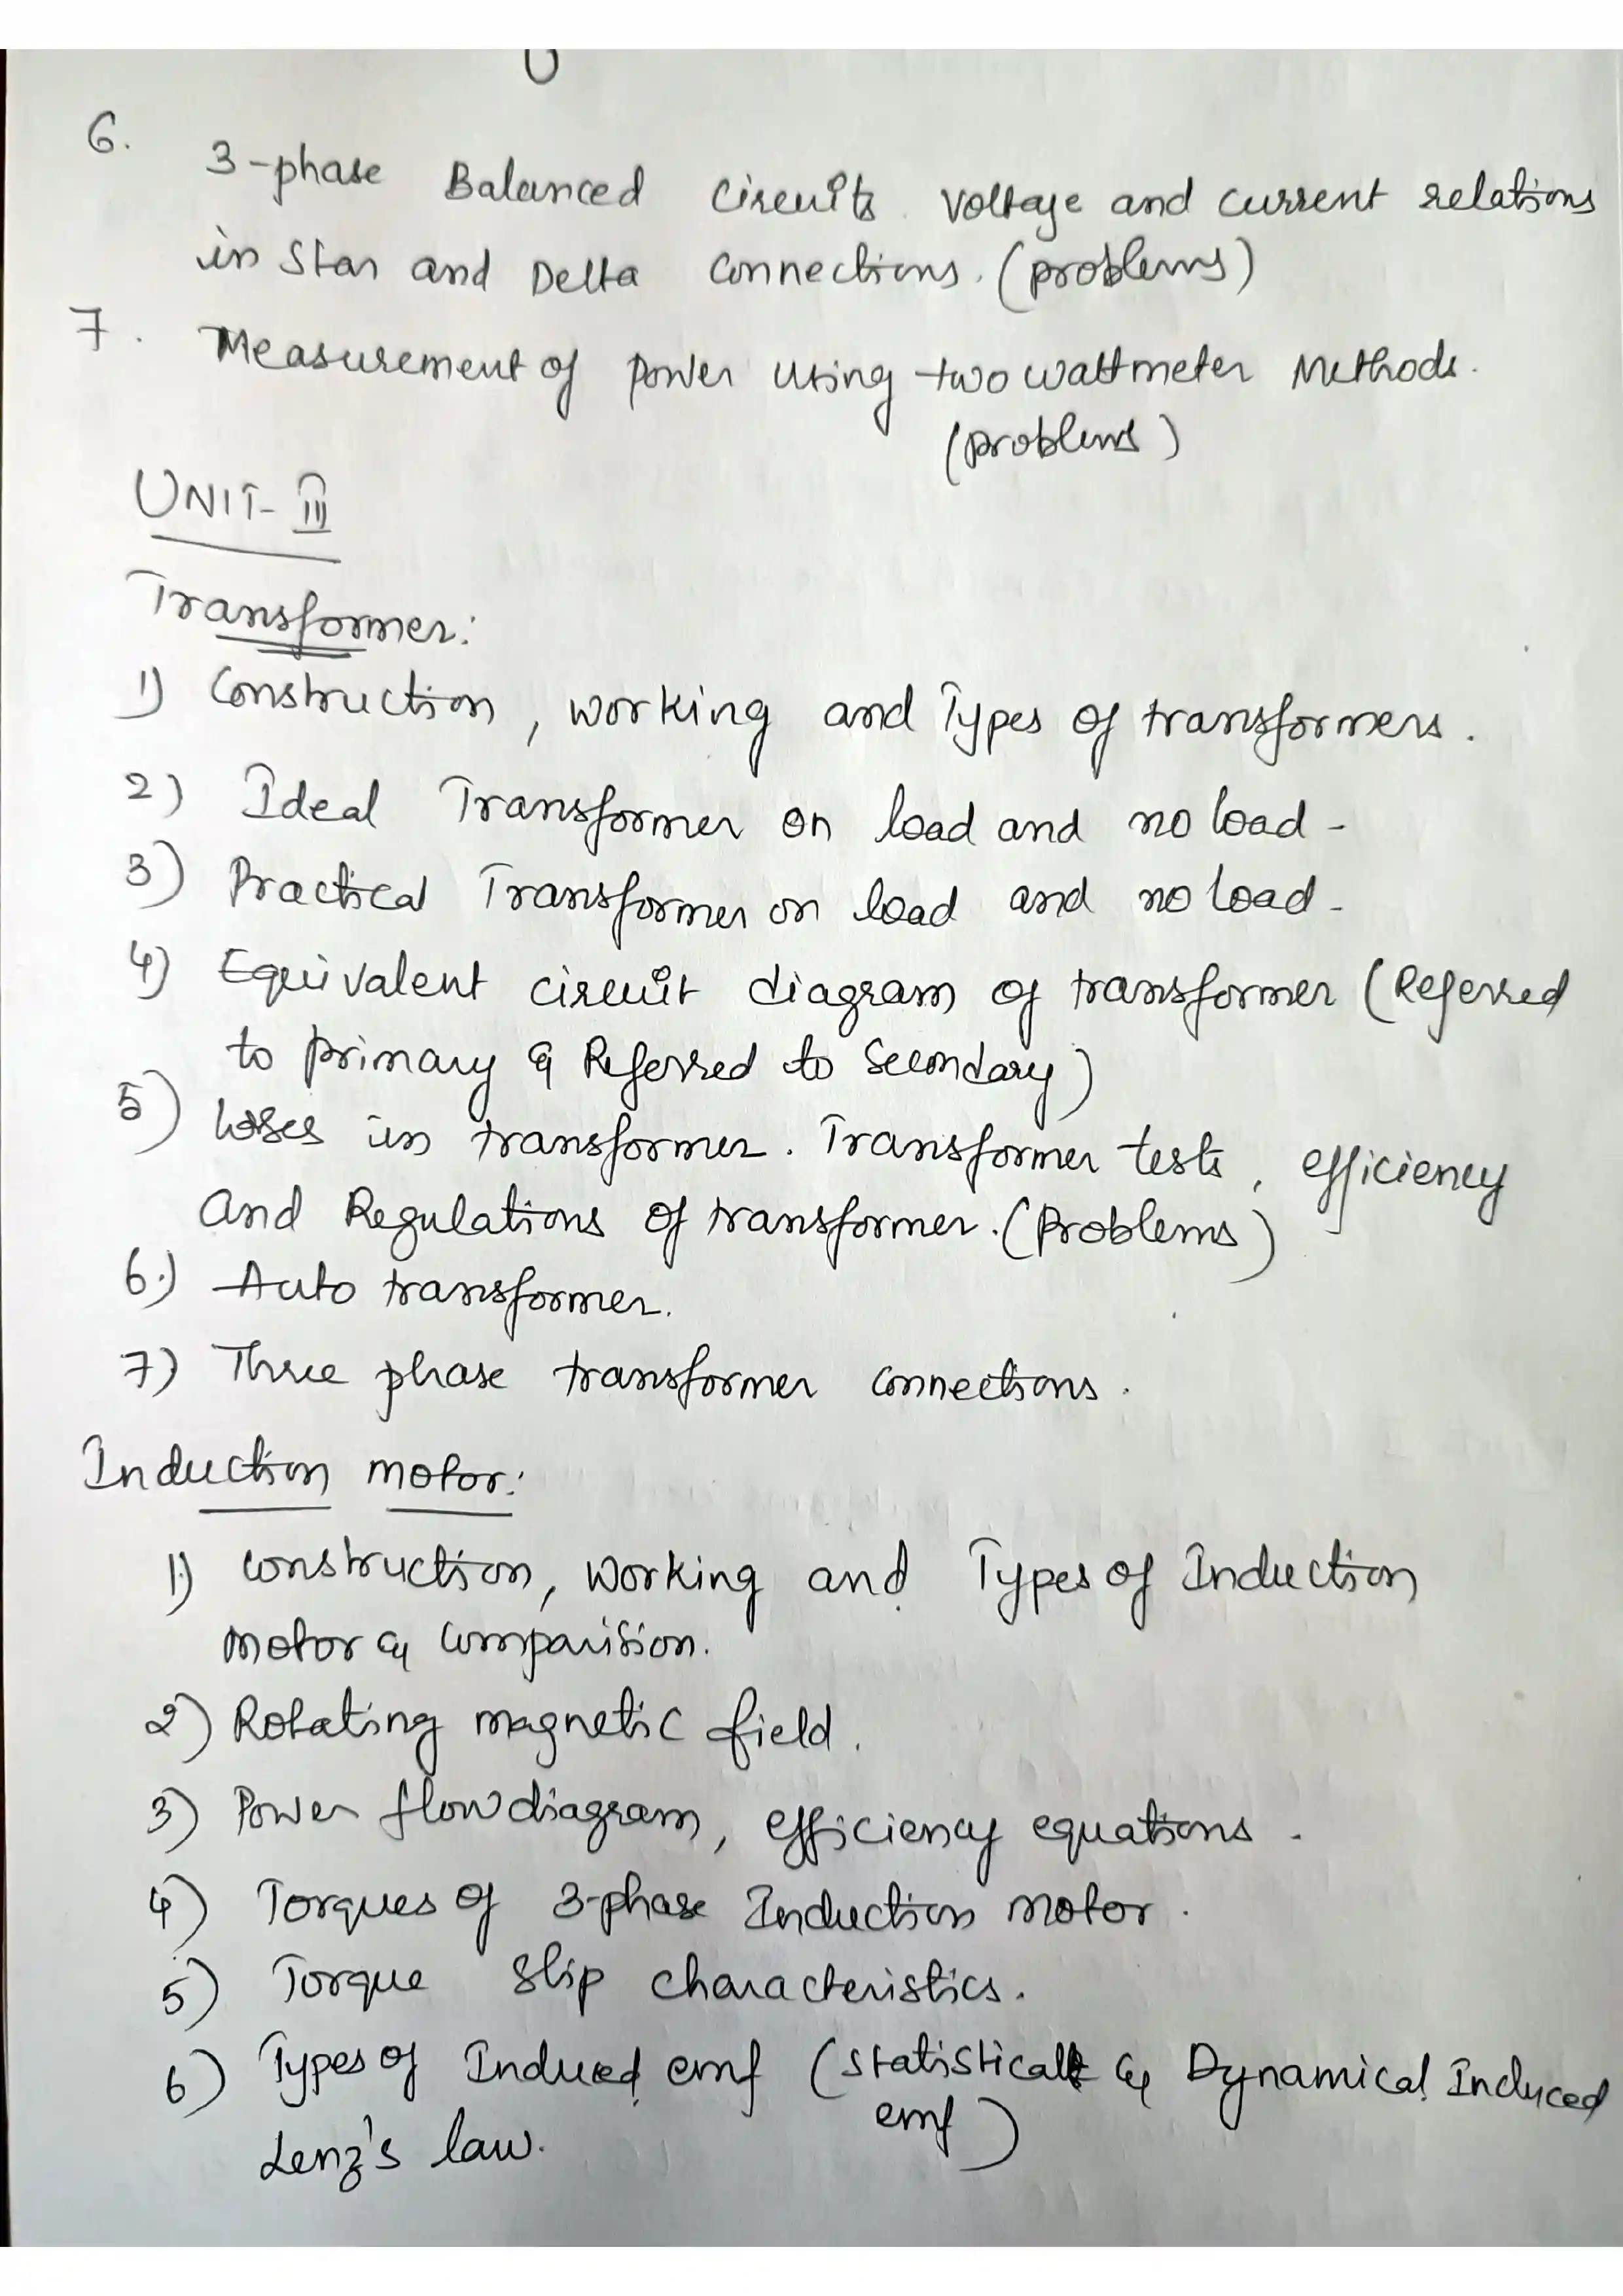 6.
3-phase Balanced circuits. Voltage and current relations
in Star and Delta connections. (problems)
7. Measurement of power using two wattmeter Methods.
(problems)
UNIT-III
Transformer:
1) Construction, working and Types of transformers.
2) Ideal Transformer on load and no load -
3) Practical Transformer on load and no load -
4) Equivalent circuit diagram of transformer (Referred
to primary & Referred to Secondary)
5) Loses in transformer. Transformer tests, efficiency
and Regulations of transformer. (Problems)
6.) Auto transformer.
7) Three phase transformer connections.
Induction motor:
1) construction, working and Types of Induction
motor & comparision.
2) Rotating magnetic field.
3) Power flow diagram, efficiency equations.
4) Torques of 3-phase Induction motor.
5) Torque slip characteristics.
6) Types of Induced emf (Statistical & Dynamical Induced
emf)
Lenz's law.